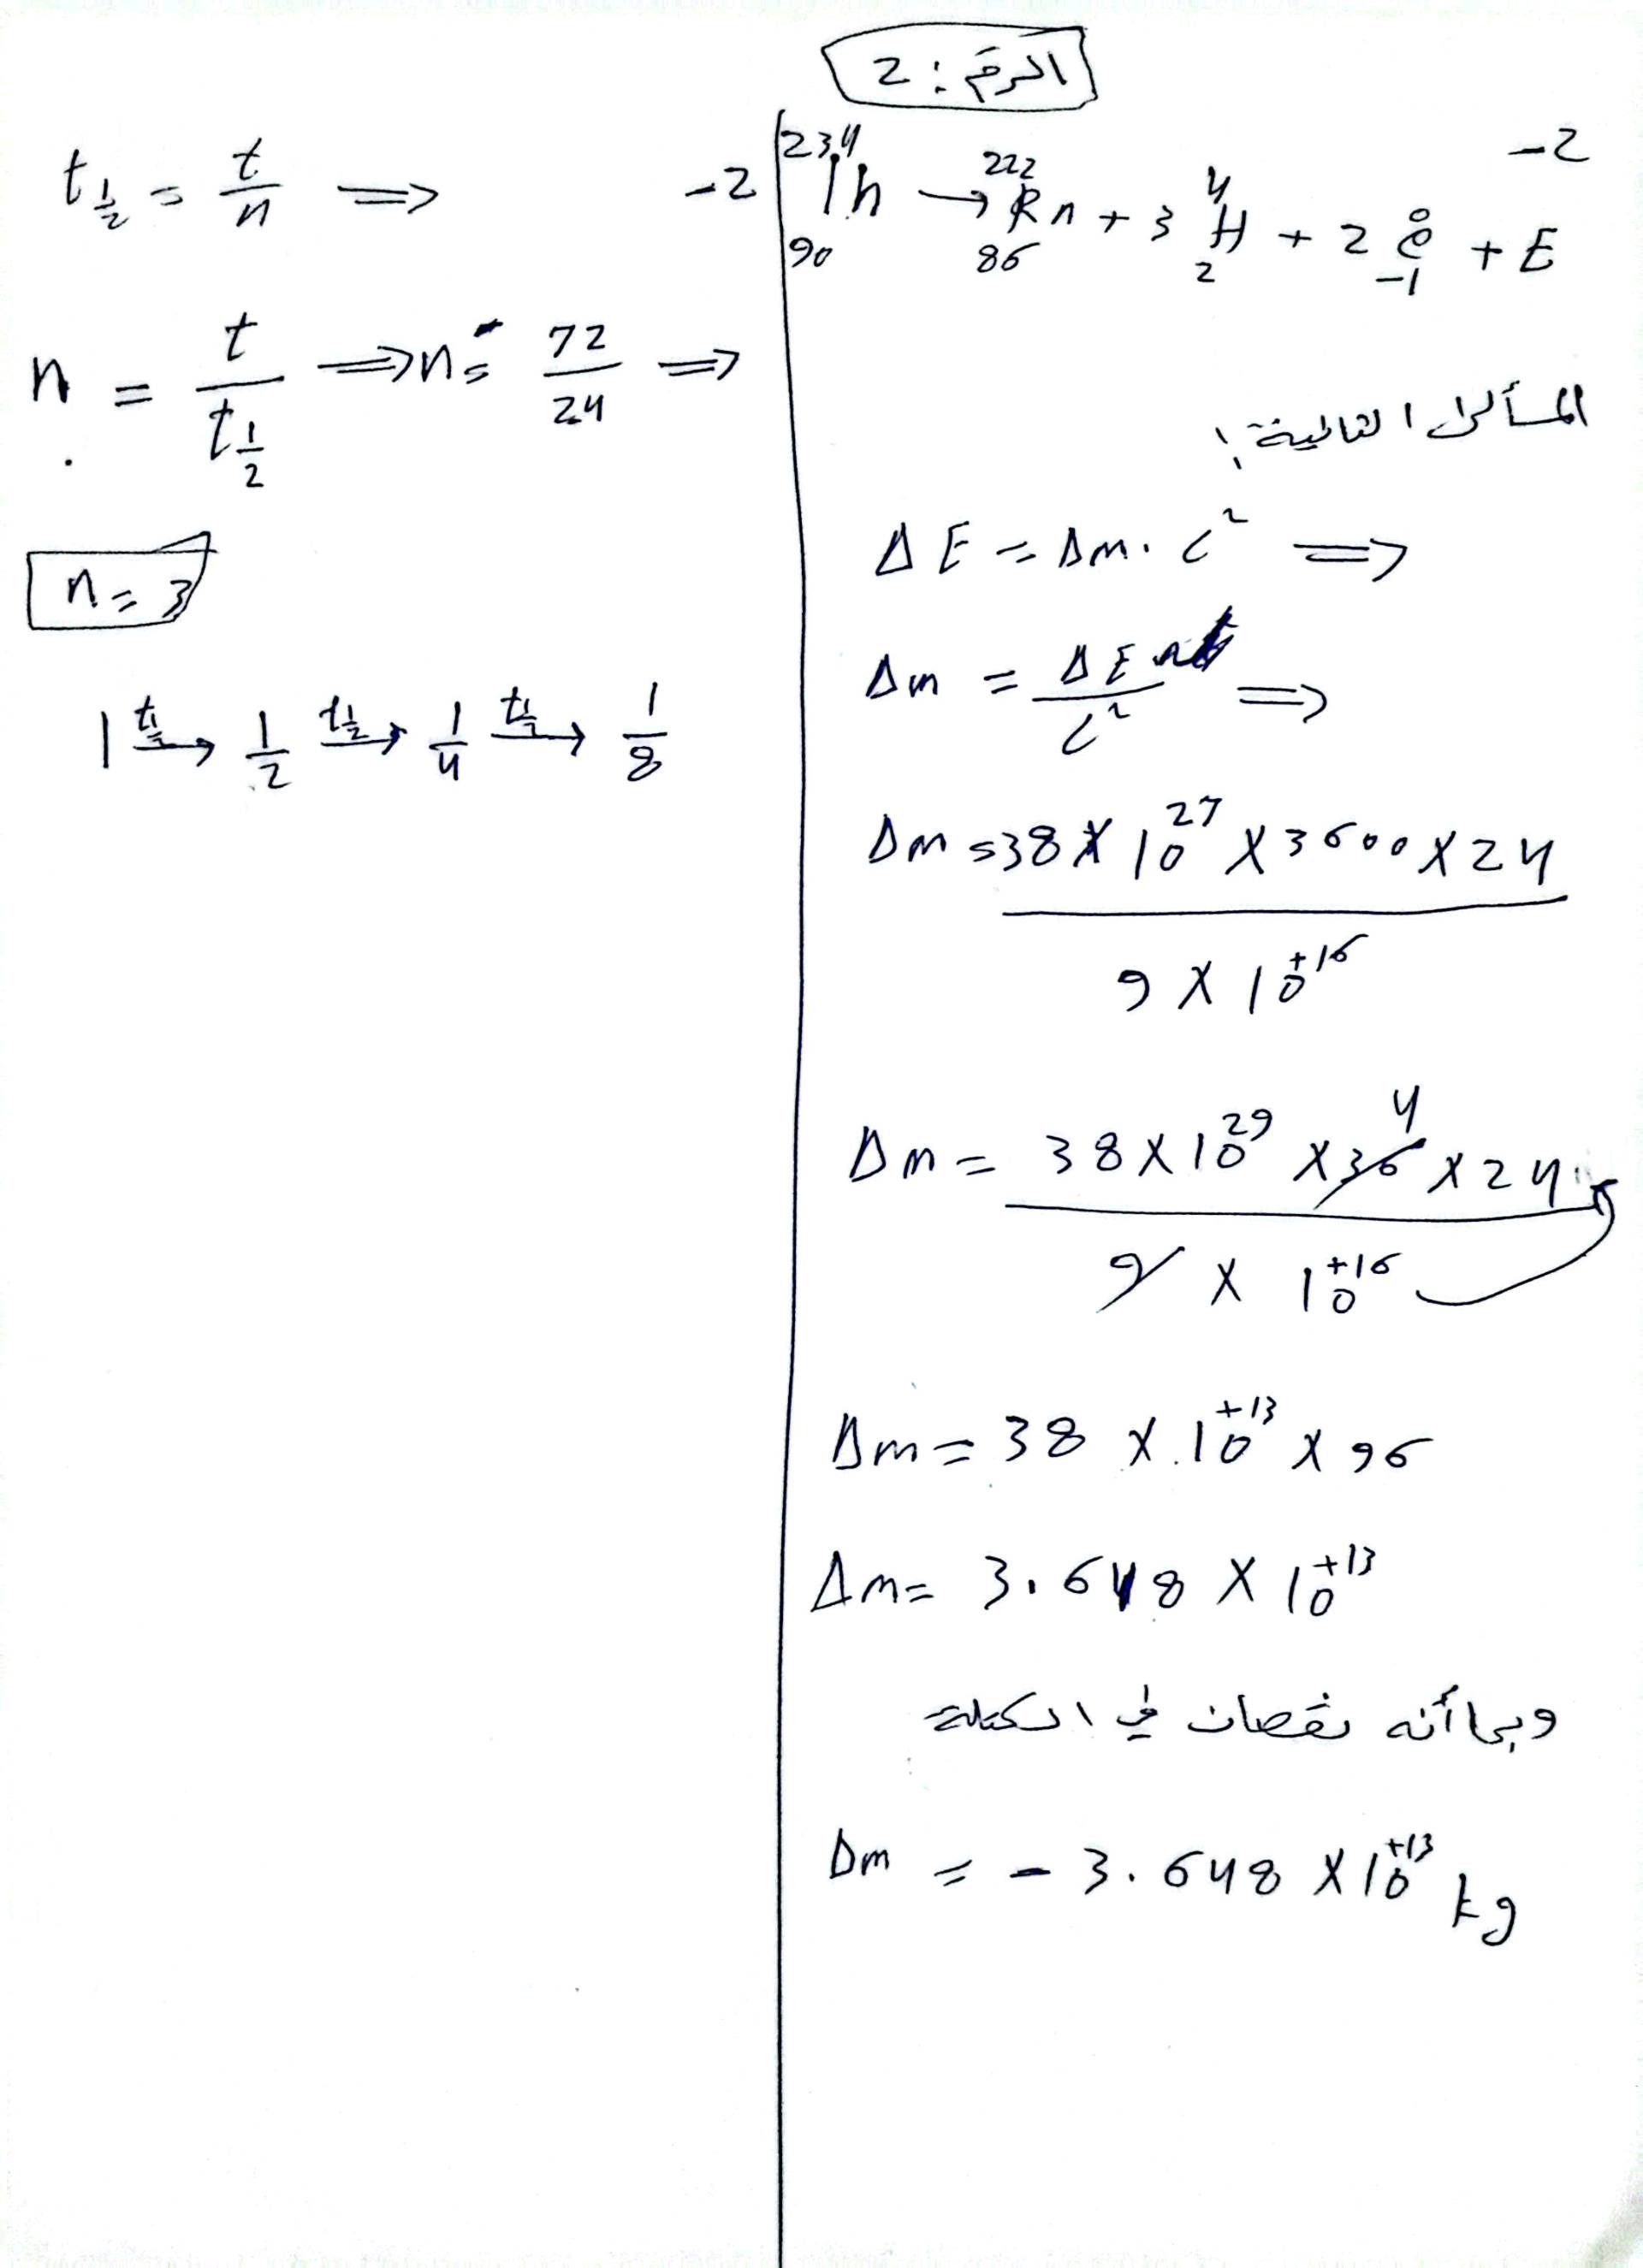 الرقم : 2
-2
²³⁴₉₀Th → ²²²₈₆Rn + 3 ⁴₂H + 2 ⁰₋₁e + E
المسألة الثانية :
ΔE = Δm . c² ⇒
Δm = ΔE t / c² ⇒
Δm = 38 × 10²⁷ × 3600 × 24 / 9 × 10⁺¹⁶
Δm = 38 × 10²⁹ × 36 4 × 24 / 9 × 10⁺¹⁶
Δm = 38 × 10⁺¹³ × 96
Δm = 3.648 × 10⁺¹³
وبما أنه نقصان في الكتلة
Δm = - 3.648 × 10⁺¹³ kg
-2
t½ = t/n ⇒
n = t/t½ ⇒ n = 72/24 ⇒
n = 3
1 t½→ 1/2 t½→ 1/4 t½→ 1/8